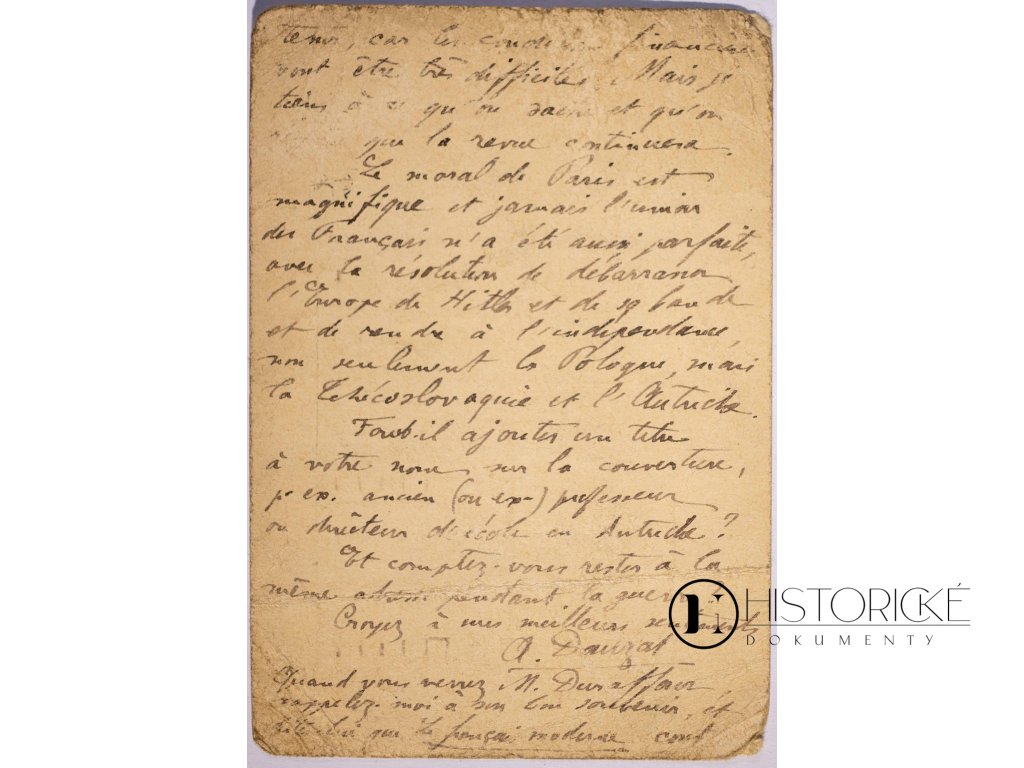 tenir, car les conditions financières
vont être très difficiles. Mais je
tiens à ce qu'on sache et qu'on
que la revue continuera.
Le moral de Paris est
magnifique et jamais l'union
des Français n'a été aussi parfaite,
avec la résolution de débarrasser
l'Europe de Hitler et de sa bande
et de rendre à l'indépendance
non seulement la Pologne, mais
la Tchécoslovaquie et l'Autriche.
Faut-il ajouter un titre
à votre nom sur la couverture,
p. ex. ancien (ou ex-) professeur
ou directeur d'école en Autriche?
Et comptez-vous rester à la
même adresse pendant la guerre
Croyez à mes meilleurs sentiments
A. Dauzat
Quand vous verrez M. Duraffour,
rappelez-moi à son bon souvenir, et
dites-lui que le français moderne cont
HISTORICKÉ
DOKUMENTY